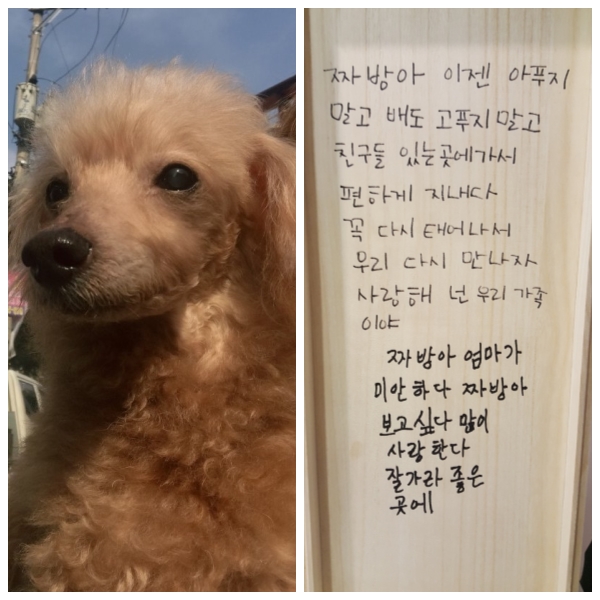 짜방아 이젠 아푸지
말고 배도 고푸지말고
친구들 있는곳에가서
편하게 지내다
꼭 다시 태어나서
우리 다시 만나자
사랑해 넌 우리 가족
이야
짜방아 엄마가
미안하다 짜방아
보고싶다 많이
사랑한다
잘가라 좋은
곳에